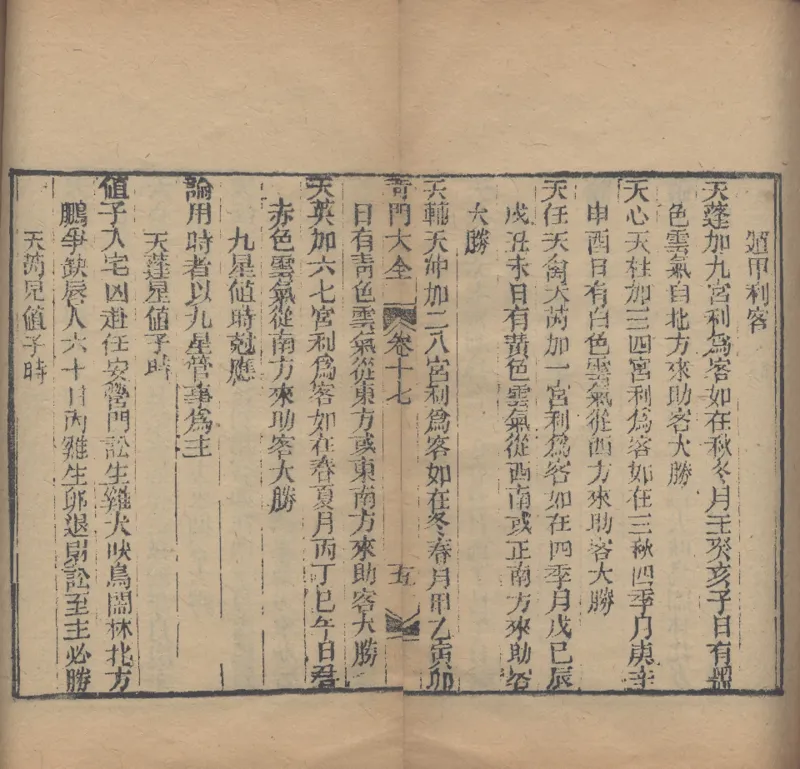 遁甲利客
天蓬加九宮利爲客如在秋冬月壬癸亥子日有黑
色雲氣自北方來助客大勝
天心天柱加三四宮利爲客如在三秋四季月庚辛
申酉日有白色雲氣從西方來助客大勝
天任天禽天芮加一宮利爲客如在四季月戊己辰
戍丑未日有黃色雲氣從西南或正南方來助客
大勝
天輔天冲加二八宮利爲客如在冬春月甲乙寅卯
奇門大全 卷十七 五
日有靑色雲氣從東方或東南方來助客大勝
天英加六七宮利爲客如在春夏月丙丁巳午日
赤色雲氣從南方來助客大勝
九星値時尅應
論用時者以九星管事爲主
天蓬星値子時
値子入宅凶赴任安營門訟生雞犬吠鳥鬧林北方
鵬爭缺唇人六十日內雞生卵退訟至主必勝
天芮星値子時